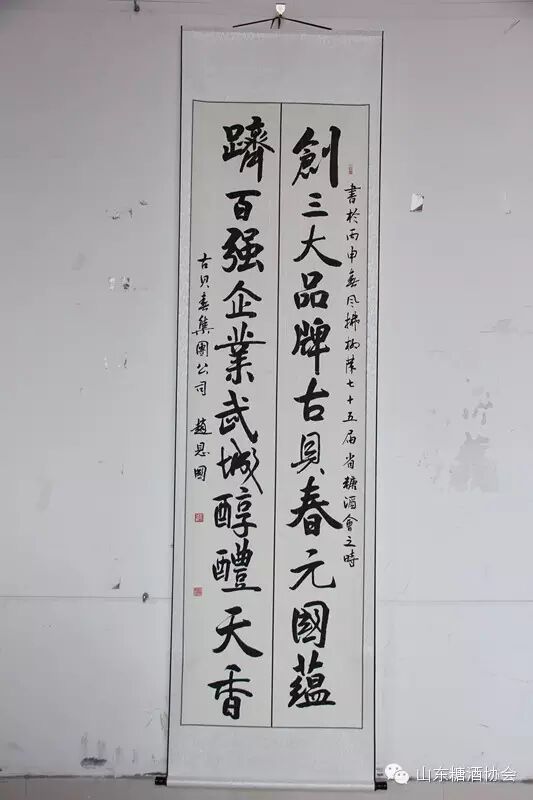 書於丙申春風拂柳第七十五届省糖酒會之時
創三大品牌古貝春元國蘊
躋百强企業武城醇醴天香
古贝春集團公司 趙恩國
山东糖酒协会